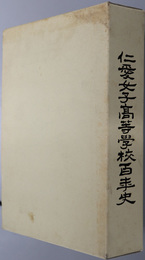 仁愛女子高等学校百年史